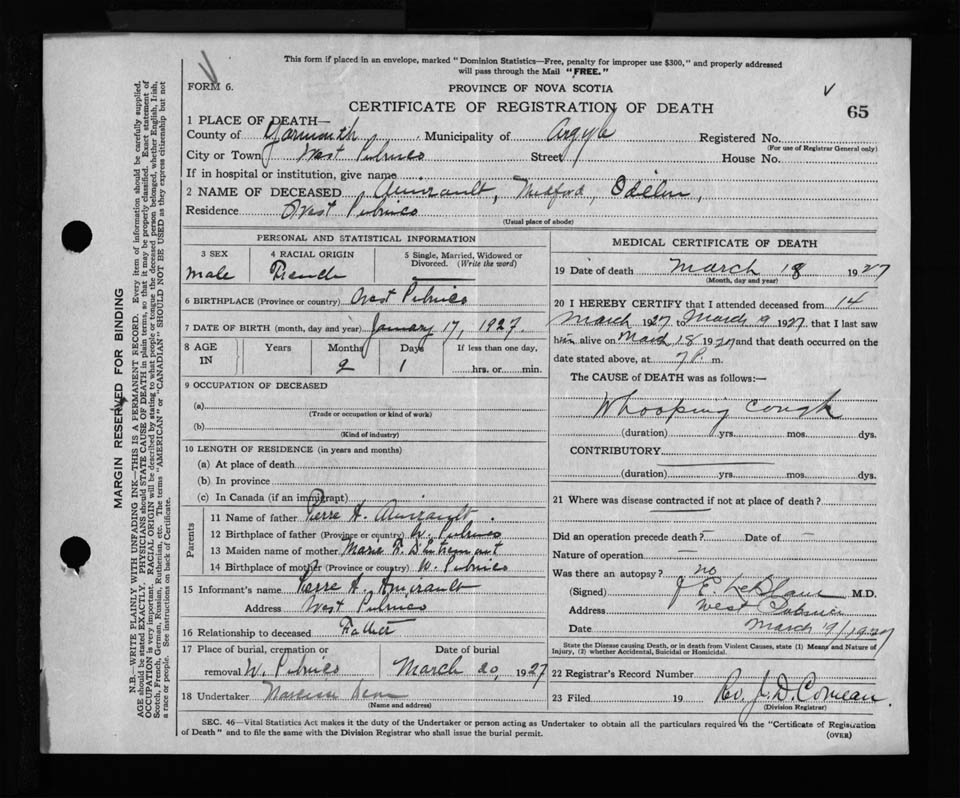 This form if placed in an envelope, marked "Dominion Statistics—Free, penalty for improper use $300," and properly addressed
will pass through the Mail "FREE."
FORM 6.
PROVINCE OF NOVA SCOTIA
CERTIFICATE OF REGISTRATION OF DEATH
65
1 PLACE OF DEATH—
County of Yarmouth Municipality of Argyle Registered No.
(For use of Registrar General only)
City or Town West Pubnico Street House No.
If in hospital or institution, give name
2 NAME OF DECEASED Amirault, Medford, Odelin,
Residence West Pubnico
(Usual place of abode)
PERSONAL AND STATISTICAL INFORMATION
3 SEX
male
4 RACIAL ORIGIN
French
5 Single, Married, Widowed or
Divorced. (Write the word)
6 BIRTHPLACE (Province or country) West Pubnico
7 DATE OF BIRTH (month, day and year) January 17, 1927.
8 AGE IN
Years Months Days If less than one day,
2 1 hrs. or min.
9 OCCUPATION OF DECEASED
(a)
(Trade or occupation or kind of work)
(b)
(Kind of industry)
10 LENGTH OF RESIDENCE (in years and months)
(a) At place of death
(b) In province
(c) In Canada (if an immigrant)
Parents
11 Name of father Pierre A. Amirault.
12 Birthplace of father (Province or country) W. Pubnico
13 Maiden name of mother Marie F. D'Entremont
14 Birthplace of mother (Province or country) W. Pubnico
15 Informant's name Pierre A. Amirault
Address West Pubnico
16 Relationship to deceased Father
17 Place of burial, cremation or
removal W. Pubnico
Date of burial
March 20, 1927
18 Undertaker Narcisse
(Name and address)
MEDICAL CERTIFICATE OF DEATH
19 Date of death March 18 1927
(Month, day and year)
20 I HEREBY CERTIFY that I attended deceased from 14
March 1927 to March 9 1927 that I last saw
him alive on March 18 1927 and that death occurred on the
date stated above, at 7 P. m.
The CAUSE of DEATH was as follows:—
Whooping cough
(duration) yrs. mos. dys.
CONTRIBUTORY
(duration) yrs. mos. dys.
21 Where was disease contracted if not at place of death?
Did an operation precede death? — Date of —
Nature of operation —
Was there an autopsy? no
(Signed) J E. LeBlanc M.D.
Address West Pubnico
Date March 19/1927
State the Disease causing Death, or in death from Violent Causes, state (1) Means and Nature of
Injury, (2) whether Accidental, Suicidal or Homicidal.
22 Registrar's Record Number
23 Filed 19 Rev. J. D. Comeau.
(Division Registrar)
SEC. 46—Vital Statistics Act makes it the duty of the Undertaker or person acting as Undertaker to obtain all the particulars required on the "Certificate of Registration
of Death" and to file the same with the Division Registrar who shall issue the burial permit.
(OVER)
MARGIN RESERVED FOR BINDING
N.B.—WRITE PLAINLY WITH UNFADING INK—THIS IS A PERMANENT RECORD. Every item of information should be carefully supplied.
AGE should be stated EXACTLY. PHYSICIANS should STATE CAUSE OF DEATH in plain terms, so that it may be properly classified. Exact statement of
OCCUPATION is very important. RACIAL ORIGIN will be described by stating to what people or tongue the deceased person belonged, whether English, Irish,
Scotch, French, German, Russian, Ruthenian, etc. The terms "AMERICAN" or "CANADIAN" SHOULD NOT BE USED as they express citizenship but not
a race or people. See instructions on back of Certificate.